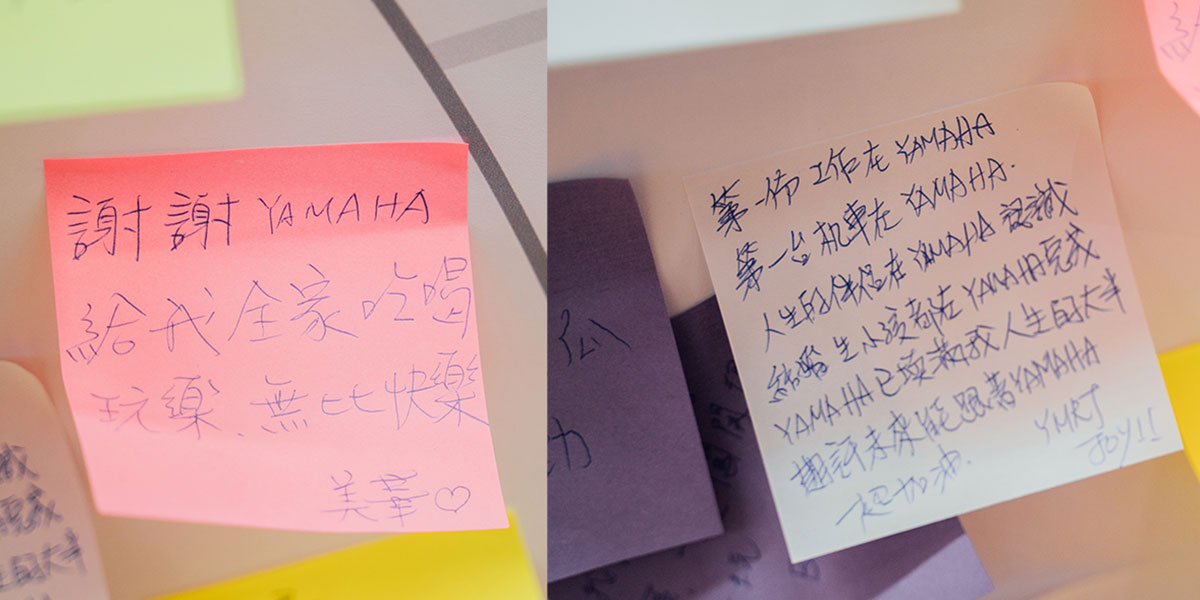 謝謝 YAMAHA
給我全家吃喝
玩樂、無比快樂
美華♡
第一份工作在 YAMAHA
第一台机車在 YAMAHA.
人生的伴侶在 YAMAHA 認識
結婚生小孩都在 YAMAHA完成
YAMAHA已填滿我人生的大半
期許未來能跟著YAMAHA
一起加油. YMRT
JOY!!